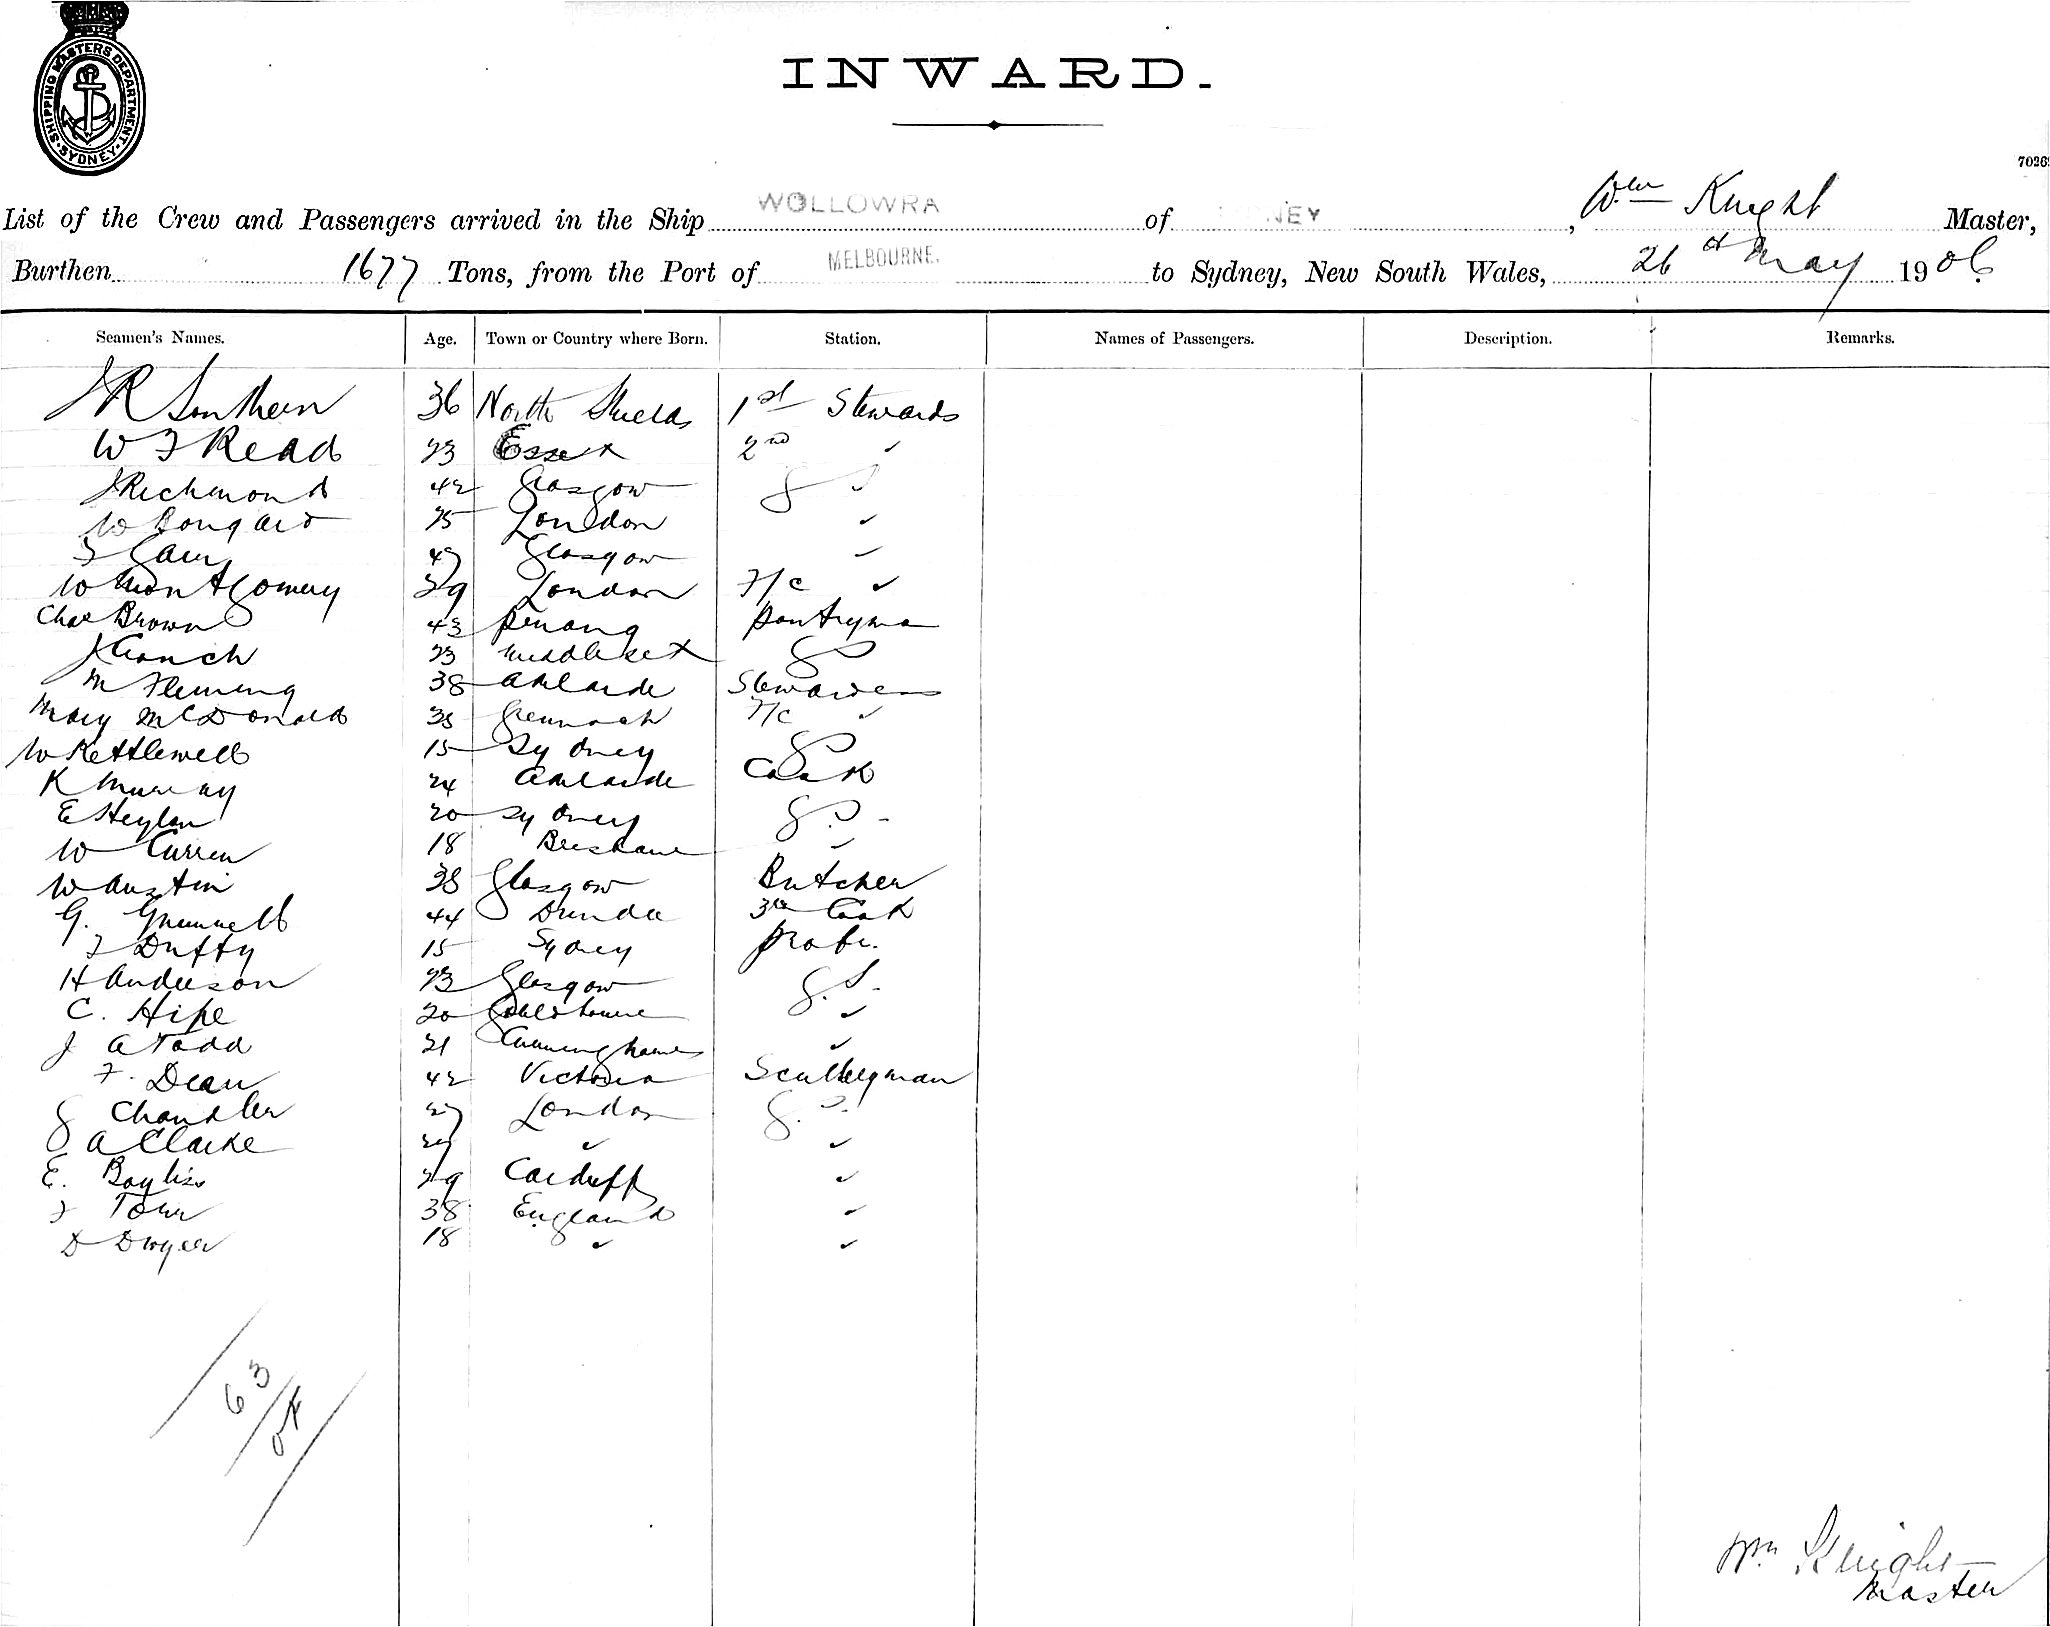 SHIPPING MASTERS DEPARTMENT SYDNEY
INWARD.
7026
List of the Crew and Passengers arrived in the Ship WOLLOWRA of NEY, Wm Knight Master,
Burthen 1677 Tons, from the Port of MELBOURNE. to Sydney, New South Wales, 26 May 1906.
Seamen's Names. Age. Town or Country where Born. Station. Names of Passengers. Description. Remarks.
J R Southern 36 North Shields 1st Stewards
W F Read 23 Essex 2nd ✓
J Richmond 42 Glasgow
W Bongard 25 London ✓
47 Glasgow ✓
W Montgomery 29 London F/c ✓
Chas Brown 43 Penang Pantryman
J Couch 23 Middlesex
M Fleming 38 Adelaide Stewardess
Mary McDonald 38 Greenock F/c ✓
W Kettlewell 15 Sydney
K Murray 24 Adelaide Cook
E Heylan 20 Sydney
W Curren 18 Brisbane
W Austin 38 Glasgow Butcher
G. 44 Dundee 3rd Cook
F Duffy 15 Sydney
H Anderson 23 Glasgow G.S.
C. Hipe 20 ✓
J A Todd 21 ✓
F. Dean 42 Victoria Sculleryman
G Chandler 27 London G.S.
A Clarke ✓ ✓
E. Bayliss 29 Cardiff ✓
F Tower 38 England ✓
D Dwyer 18 ✓ ✓
63
Wm Knight
Master